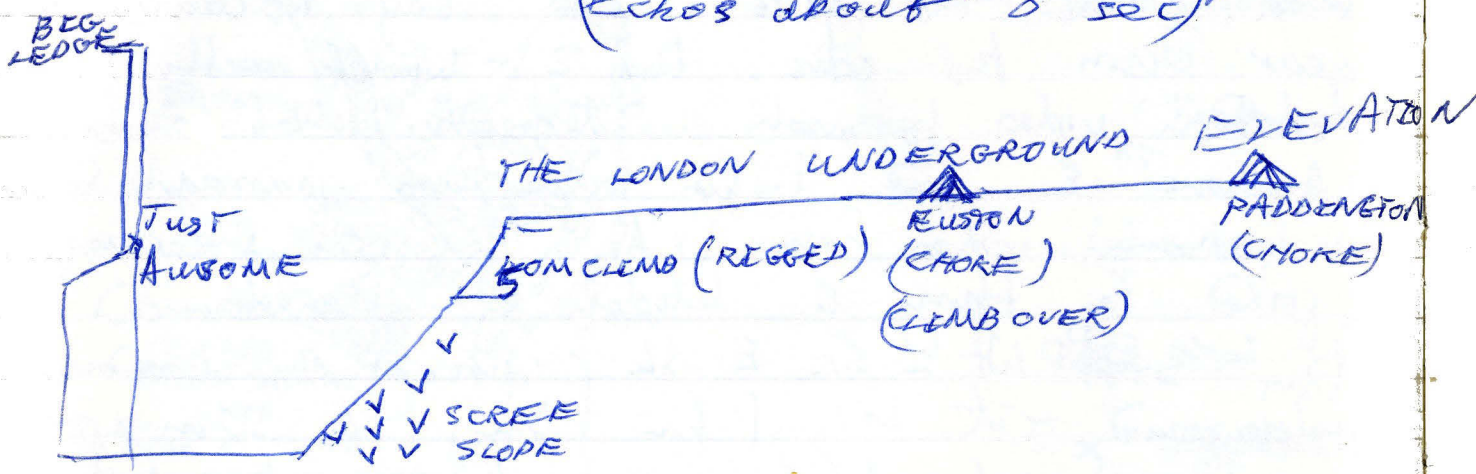 (Echos about sec)
BIG
LEDGE
THE LONDON UNDERGROUND ELEVATION
JUST
AWSOME
CLIMB (RIGGED)
EUSTON
(CHOKE)
(CLIMB OVER)
PADDINGTON
(CHOKE)
SCREE
SLOPE